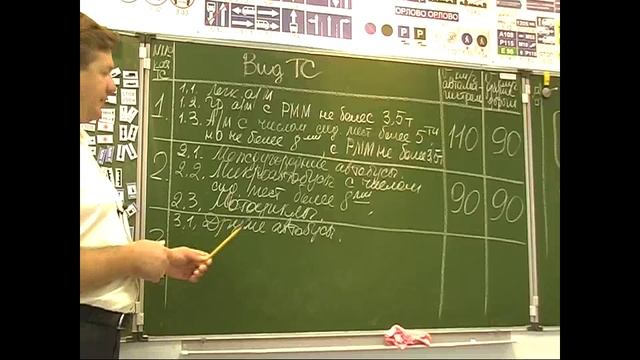 ОРЛОВО ОРЛОВО
А108
Р115
Е 96
ТС
Вид ТС
на автомагистрали
1.
1.1. Легк. а/м
1.2. Гр. а/м с РММ не более 3.5т
1.3. А/м с числом сид. мест более 5ти
но не более 8ми, с РММ не более 3,5т
110
90
2.
2.1. Междугородние автобусы.
2.2. Микроавтобусы с числом
сид. мест более 8ми,
2.3. Мотоциклы.
90
90
3
3.1. Другие автобусы.